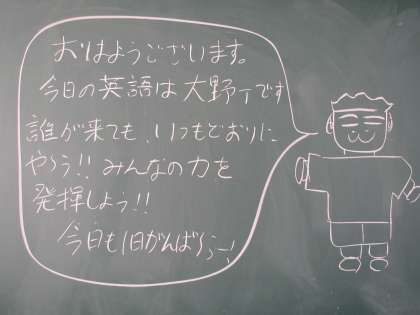 おはようございます。
今日の英語は大野Tです
誰が来ても、いつもどおりに
やろう!! みんなの力を
発揮しよう!!
今日も1日がんばろうー!